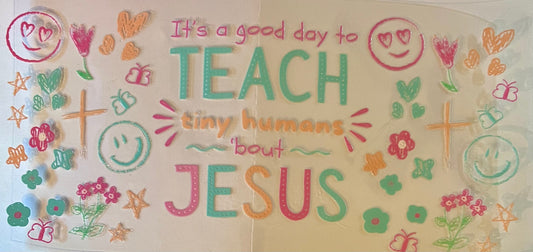 It's a good day to
TEACH
tiny humans
'bout
JESUS